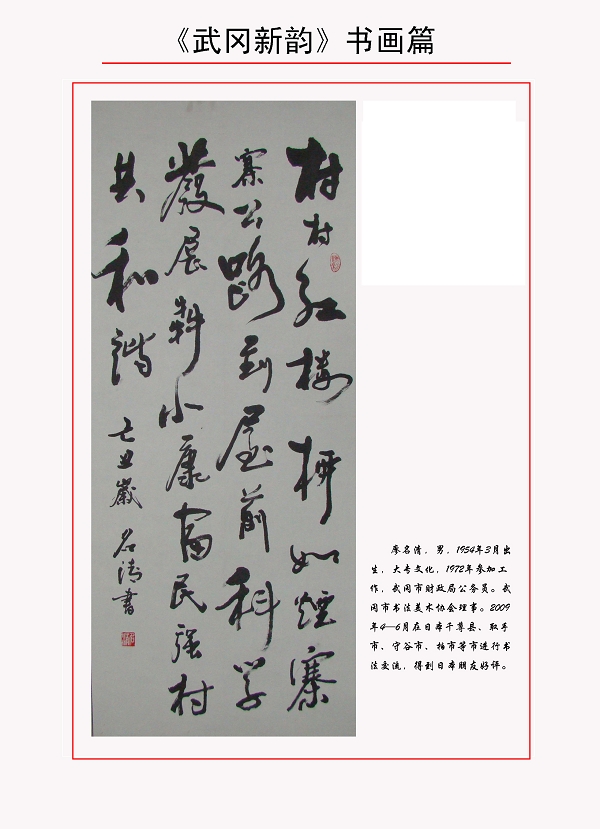 《武冈新韵》书画篇
村村红樓如煙寨
寨公路到屋前科学
發展犇小康富民强村
共和谐
己丑歲 名清書
廖名清，男，1954年3月出
生，大专文化，1972年参加工
作，武冈市财政局公务员。武
冈市书法美术协会理事。2009
年4—6月在日本千葉县、取手
市、守谷市、柏市等市进行书
法交流，得到日本朋友好评。